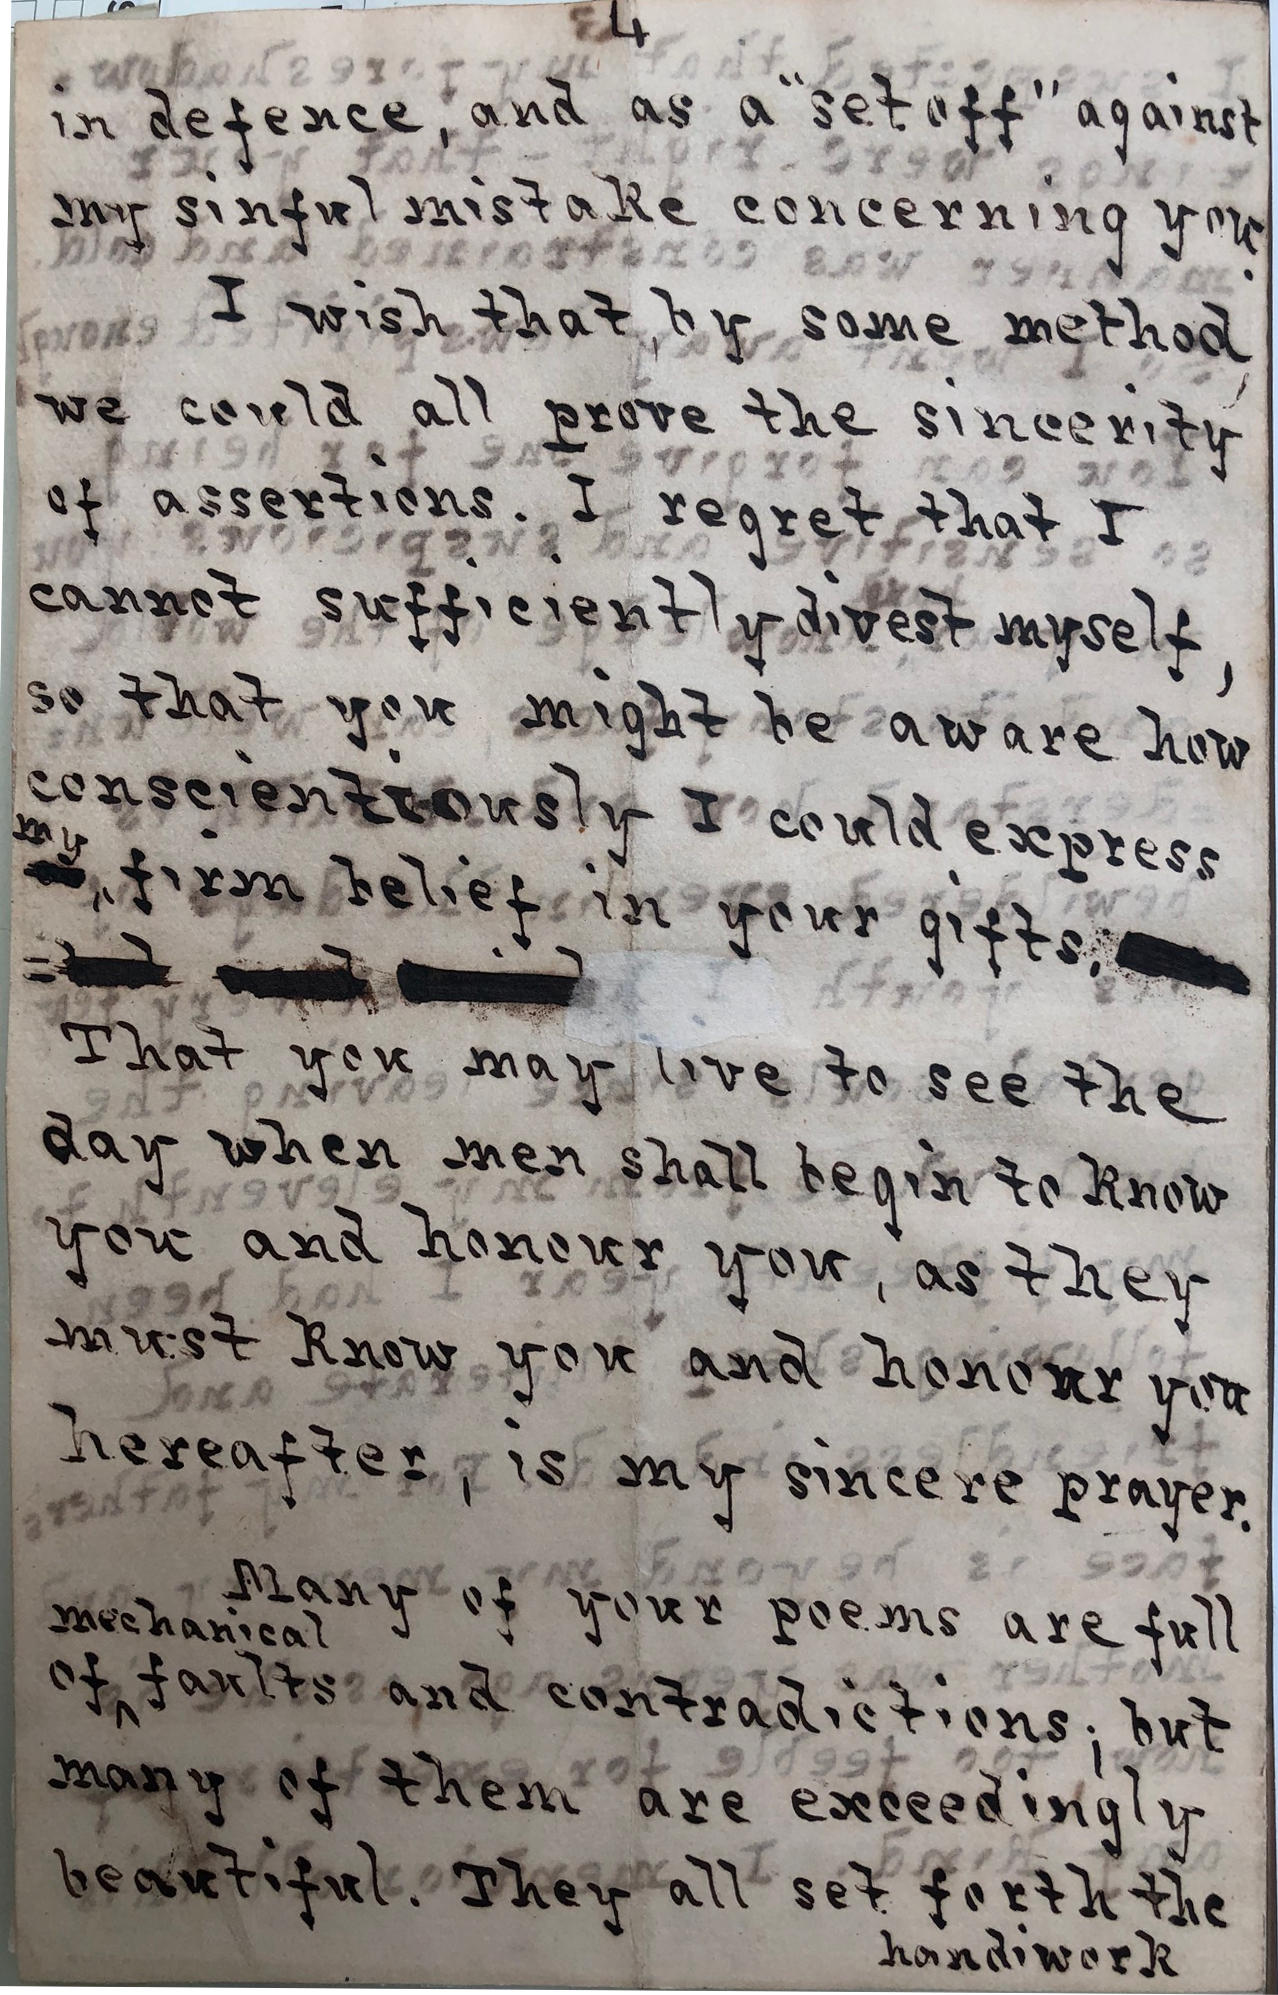 4
in defence, and as a "set off" against
my sinful mistake concerning you.
I wish that, by some method,
we could all prove the sincerity
of assertions. I regret that I
cannot sufficiently divest myself,
so that you might be aware how
conscientiously I could express
my
firm belief in your gifts.
That you may live to see the
day when men shall begin to know
you and honour you, as they
must know you and honour you
hereafter, is my sincere prayer.
Many of your poems are full
mechanical
of ^ faults and contradictions; but
many of them are exceedingly
beautiful. They all set forth the
handiwork